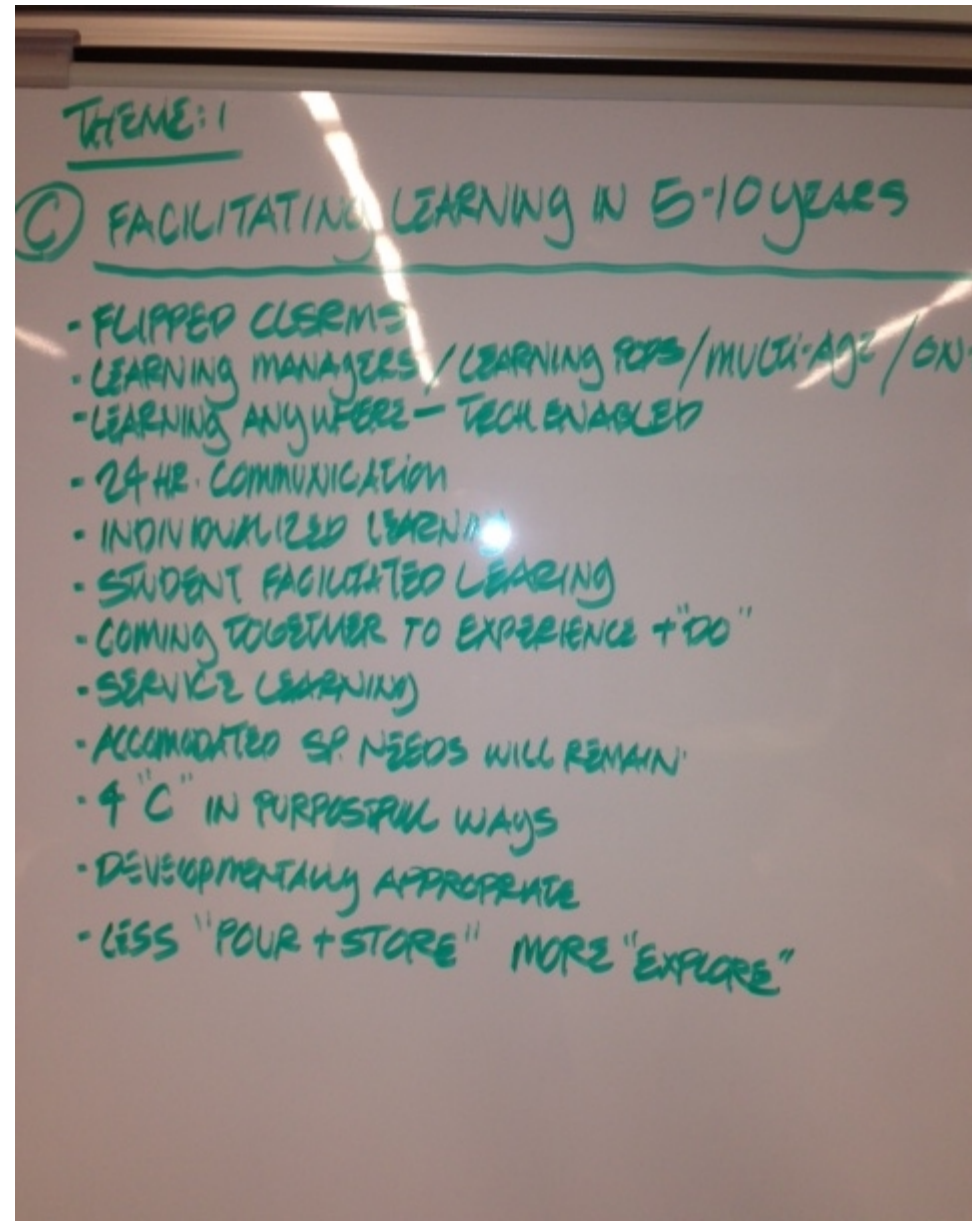 THEME: 1
C FACILITATING LEARNING IN 5-10 YEARS
- FLIPPED CLSRMS
- LEARNING MANAGERS / LEARNING PODS / MULTI-AGE / ON-
- LEARNING ANYWHERE - TECH ENABLED
- 24 HR. COMMUNICATION
- INDIVIDUALIZED LEARNING
- STUDENT FACILITATED LEARING
- COMING TOGETHER TO EXPERIENCE + "DO"
- SERVICE LEARNING
- ACCOMODATED SP. NEEDS WILL REMAIN
- 4 "C" IN PURPOSEFUL WAYS
- DEVELOPMENTALLY APPROPRIATE
- LESS "POUR + STORE" MORE "EXPLORE"